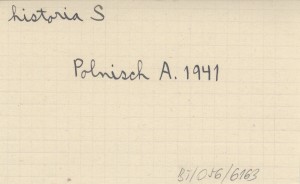 historia S
Polnisch A. 1941
BI/OSG/6163